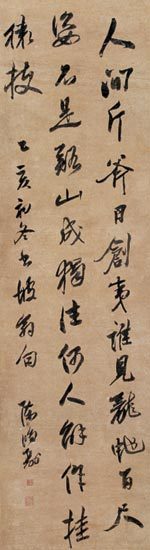 人間斤斧日創夷誰見龍虵百尺
姿不是谿山成獨往何人解作挂
猿枝 乙亥初冬書坡翁句 陳鴻壽